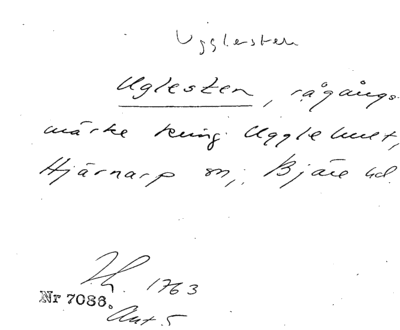 Ugglesten
Uglesten, rågångs
märke kring Ugglehult,
Hjärnarp sn; Bjäre hd.
1763
Nr 7086.
Akt 5